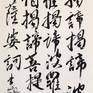 揭諦揭諦波
羅揭諦波羅
僧揭諦菩提
薩婆訶